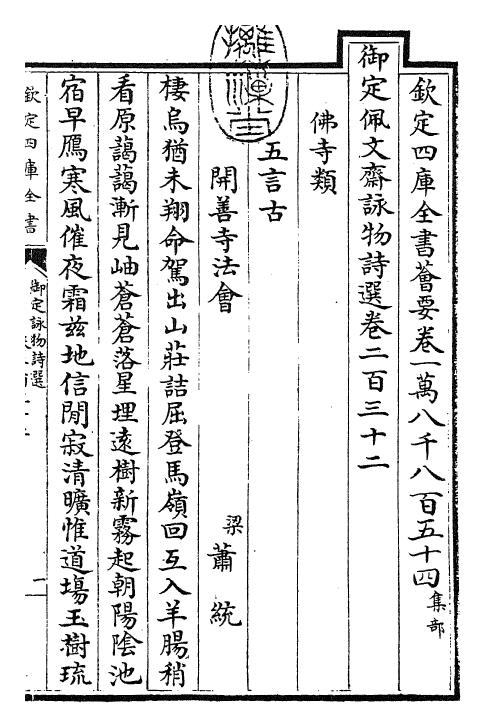 欽定四庫全書薈要卷一萬八千八百五十四 集部
御定佩文齋詠物詩選卷二百三十二
佛寺類
五言古
開善寺法會 梁 蕭統
棲烏猶未翔命駕出山莊詰屈登馬嶺回互入羊腸稍
看原藹藹漸見岫蒼蒼落星埋遠樹新霧起朝陽陰池
宿早鴈寒風催夜霜茲地信閒寂清曠惟道塲玉樹琉
欽定四庫全書
御定詠物詩選